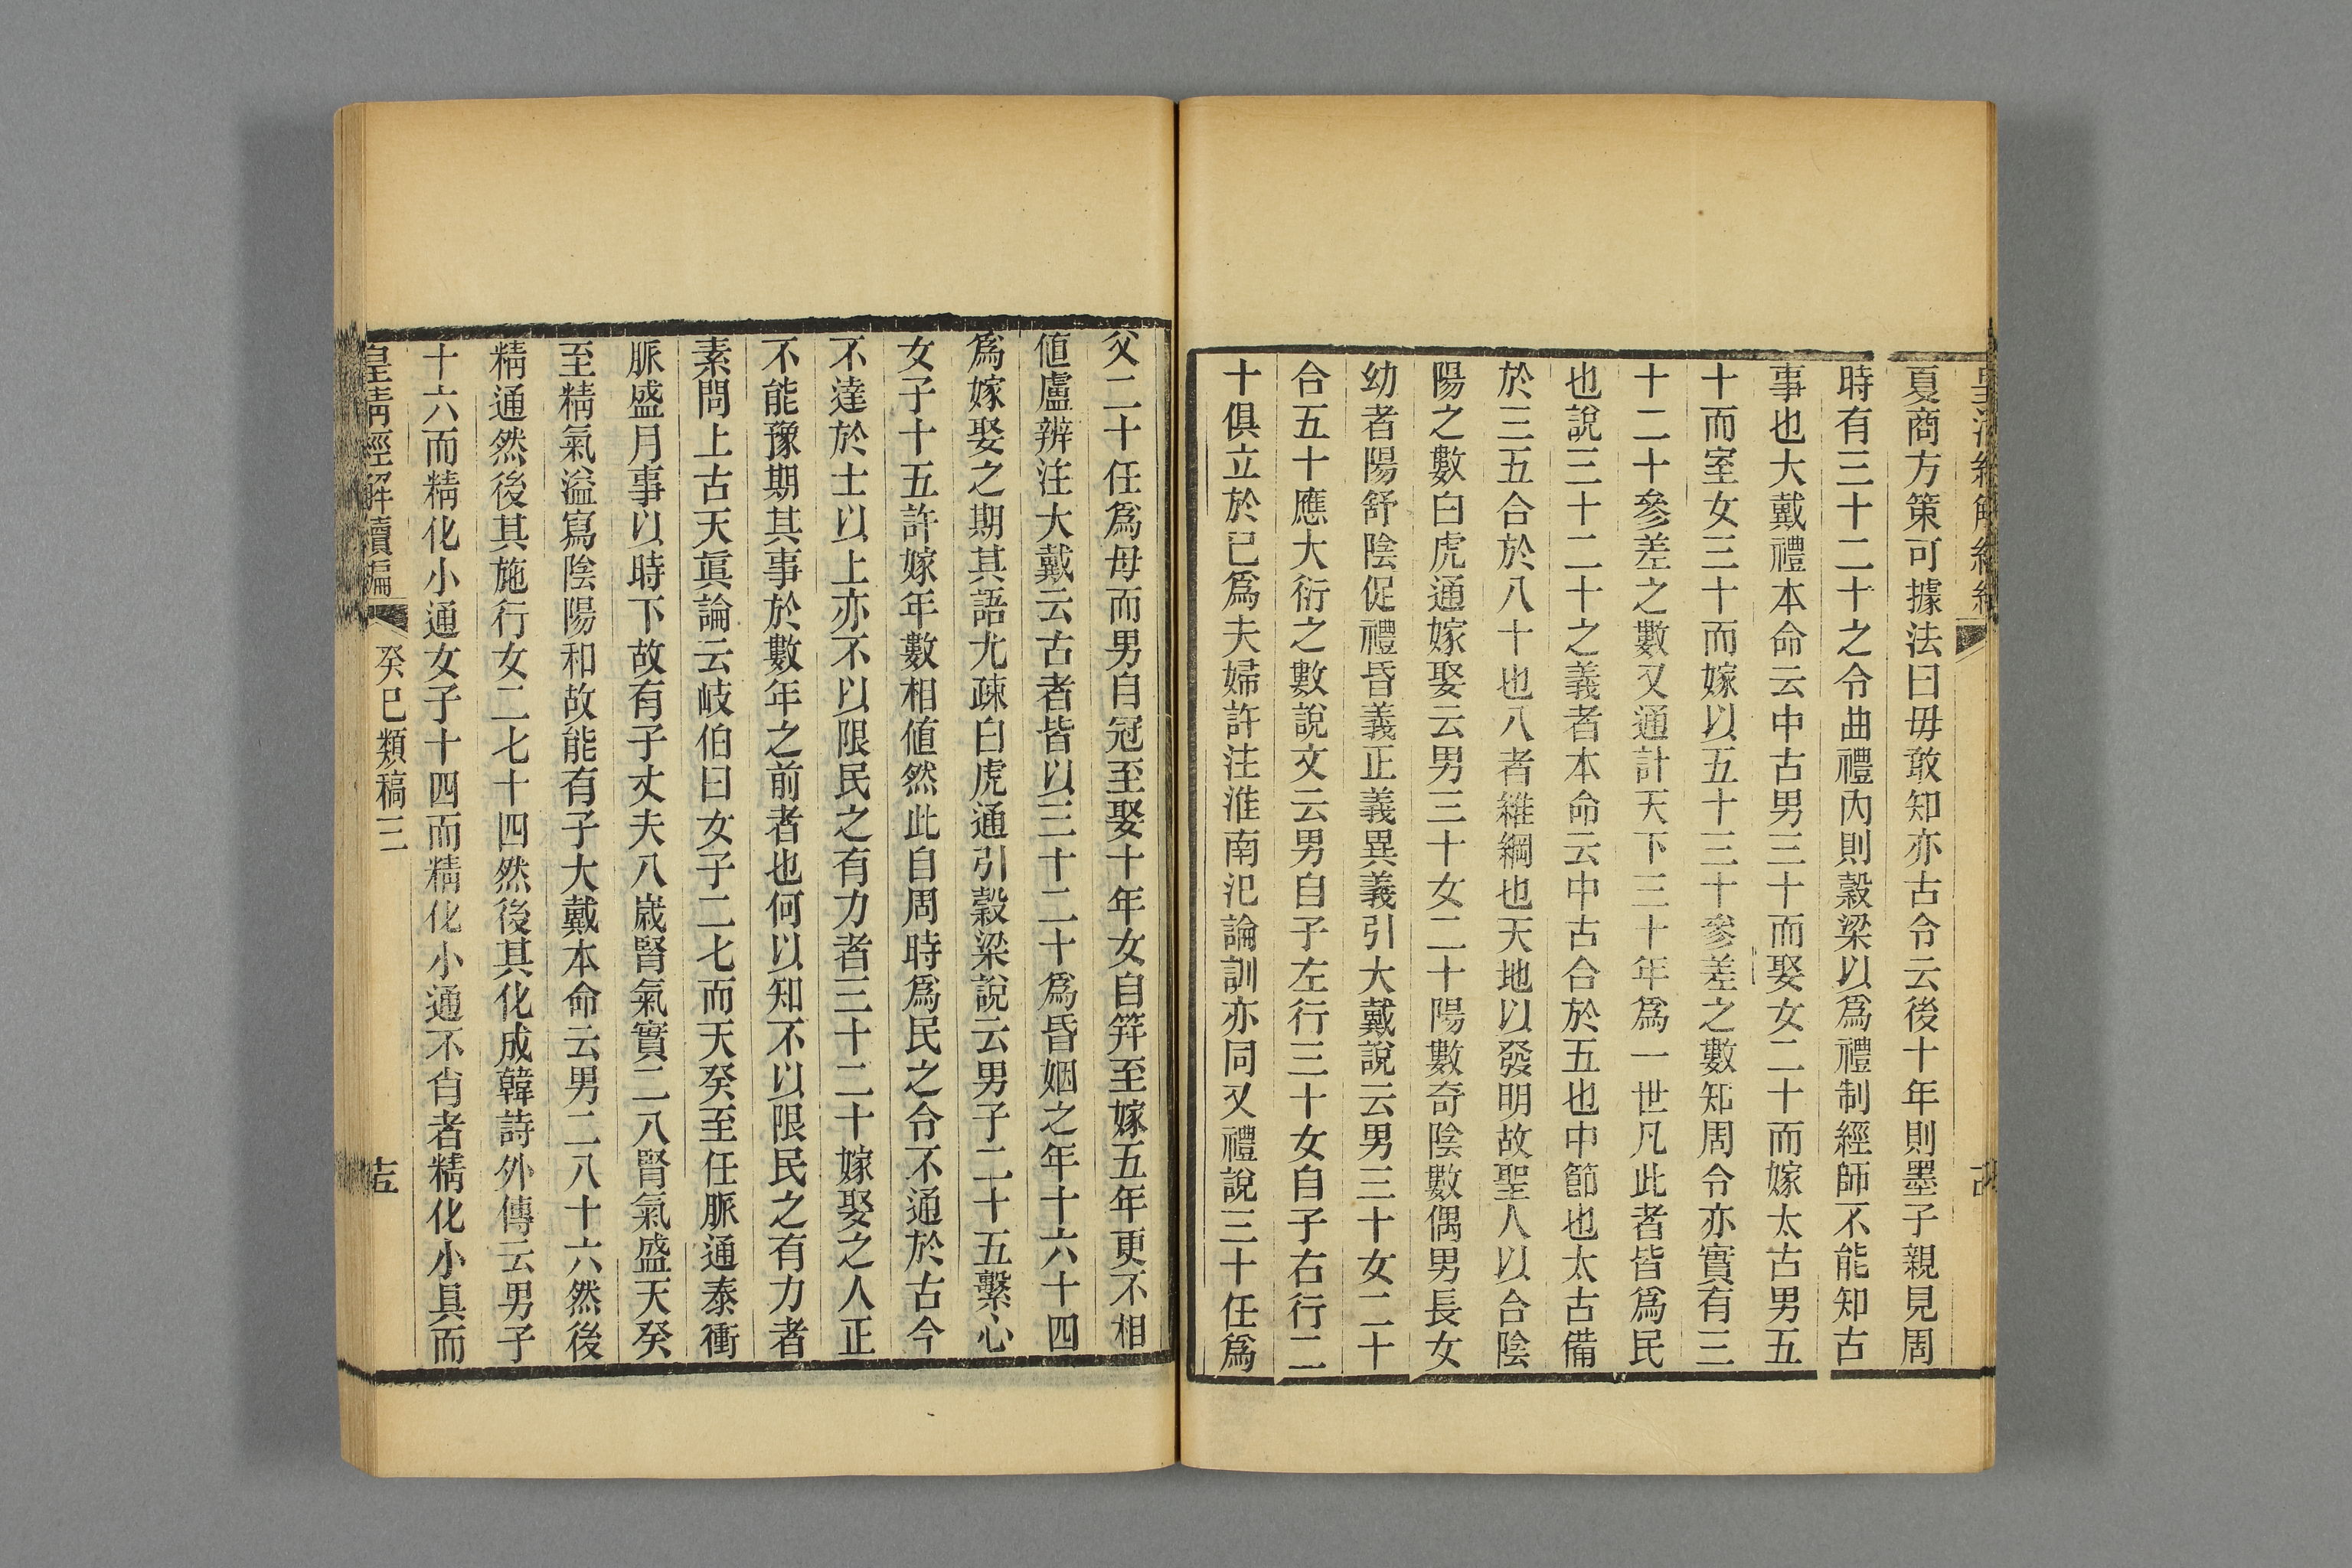 夏商方策可據法曰毋敢知亦古令云後十年則墨子親見周
時有三十二十之令曲禮內則穀梁以爲禮制經師不能知古
事也大戴禮本命云中古男三十而娶女二十而嫁太古男五
十而室女三十而嫁以五十三十參差之數知周令亦實有三
十二十參差之數又通計天下三十年爲一世凡此者皆爲民
也說三十二十之義者本命云中古合於五也中節也太古備
於三五合於八十也八者維綱也天地以發明故聖人以合陰
陽之數白虎通嫁娶云男三十女二十陽數奇陰數偶男長女
幼者陽舒陰促禮昏義正義異義引大戴說云男三十女二十
合五十應大衍之數說文云男自子左行三十女自子右行二
十俱立於巳爲夫婦許注淮南氾論訓亦同又禮說三十任爲
父二十任爲母而男自冠至娶十年女自笄至嫁五年更不相
値盧辨注大戴云古者皆以三十二十爲昏姻之年十六十四
爲嫁娶之期其語尤疎白虎通引穀梁說云男子二十五繫心
女子十五許嫁年數相値然此自周時爲民之令不通於古今
不達於士以上亦不以限民之有力者三十二十嫁娶之人正
不能豫期其事於數年之前者也何以知不以限民之有力者
素問上古天眞論云岐伯曰女子二七而天癸至任脈通泰衝
脈盛月事以時下故有子丈夫八歲腎氣實二八腎氣盛天癸
至精氣溢寫陰陽和故能有子大戴本命云男二八十六然後
精通然後其施行女二七十四然後其化成韓詩外傳云男子
十六而精化小通女子十四而精化小通不肖者精化小具而
皇淸經解續編 癸巳類稿三 十五